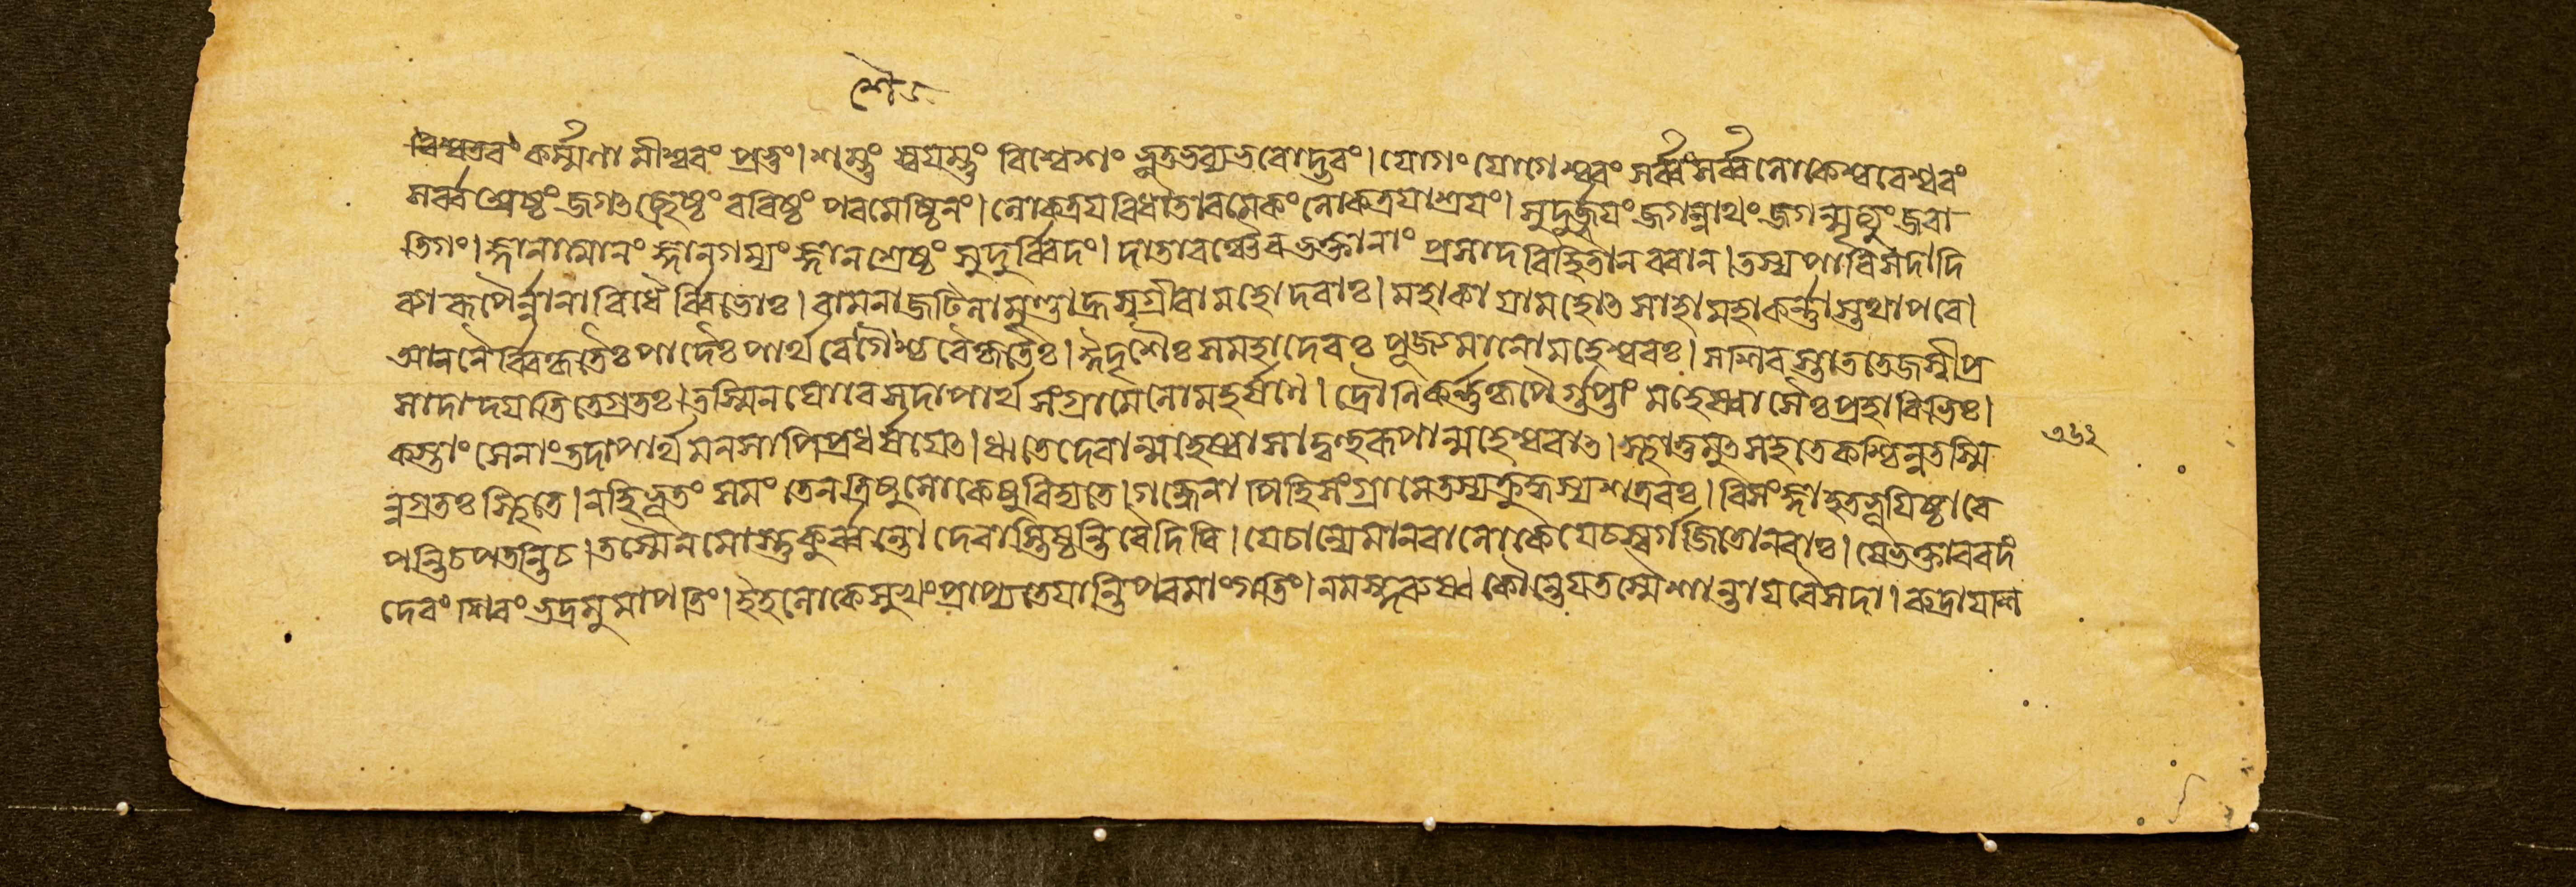 শৈত
বিশ্বতরং কর্ম্মণামীশ্বরং প্রভুং। শম্ভুং স্বয়ম্ভুং বিশ্বেশং ভূতভব্যভবোদ্ভবং। যোগং যোগেশ্বরং সর্ব্বং সর্ব্বলোকেশ্বরেশ্বরং
সর্ব্বশ্রেষ্ঠং জগচ্ছ্রেষ্ঠং বরিষ্ঠং পরমেষ্ঠিনং। লোকত্রয়বিধাতারমেকং লোকত্রয়াশ্রয়ং। সুদুর্জ্জয়ং জগন্নাথং জগন্মৃত্যুং জরা
তিগং। জ্ঞানাত্মানং জ্ঞানগম্যং জ্ঞানশ্রেষ্ঠং সুদুর্ব্বিদং। দাতারঞ্চৈব ভক্তানাং প্রসাদবিহিতান বরান। তস্য পারিসদাদি
ব্যা রূপৈর্ন্নানাবিধৈর্ব্বিভোঃ। বামনা জটিলা মুণ্ডা হ্রস্বগ্রীবা মহোদরাঃ। মহাকায়া মহোৎসাহা মহাকর্ন্নাস্তথাপরে।
আননৈর্ব্বিকৃতৈঃ পাদৈঃ পার্থ বেশৈশ্চ বৈকৃতৈঃ। ঈদৃশৈঃ স মহাদেবঃ পূজ্যমানো মহেশ্বরঃ। স শিবস্তাত তেজস্বী প্র
সাদাদ্যাতি তেগ্রতঃ। তস্মিন ঘোরে সদা পার্থ সংগ্রামে লোমহর্ষণে। দ্রৌনিকর্ন্নকৃপৈর্গুপ্তাং মহেস্বাসৈঃ প্রহারিভিঃ।
কস্তাং সেনাং তদা পার্থ মনসাপি প্রধর্ষয়েৎ। ঋতে দেবান্মহেষ্বাসাদ্বহুরূপান্মহেশ্বরাৎ। স্থাতুমুৎসহতে কশ্চিন্ন তস্মি
ন্নগ্রতঃ স্থিতে। নহি ভূতং সমং তেন ত্রিষু লোকেষু বিদ্যতে। গন্ধেনাপি হি সংগ্রামে তস্য ক্রুদ্ধস্য শত্রবঃ। বিসংজ্ঞা হতভূয়িষ্ঠা বে
পন্তি চ পতন্তি চ। তস্মৈ নমোস্তু কুর্ব্বন্তো দেবাস্তিষ্ঠন্তি বৈ দিবি। যে চান্যে মানবা লোকে যে চ স্বর্গজিতো নরাঃ। যে ভক্তা বরদং
দেবং শিবং ভদ্রমুমাপতিং। ইহ লোকে সুখং প্রাপ্য তে যান্তি পরমাং গতিং। নমস্কুরুষ্ব কৌন্তেয় তস্মৈ শান্তায় বৈ সদা। রুদ্রায় শ